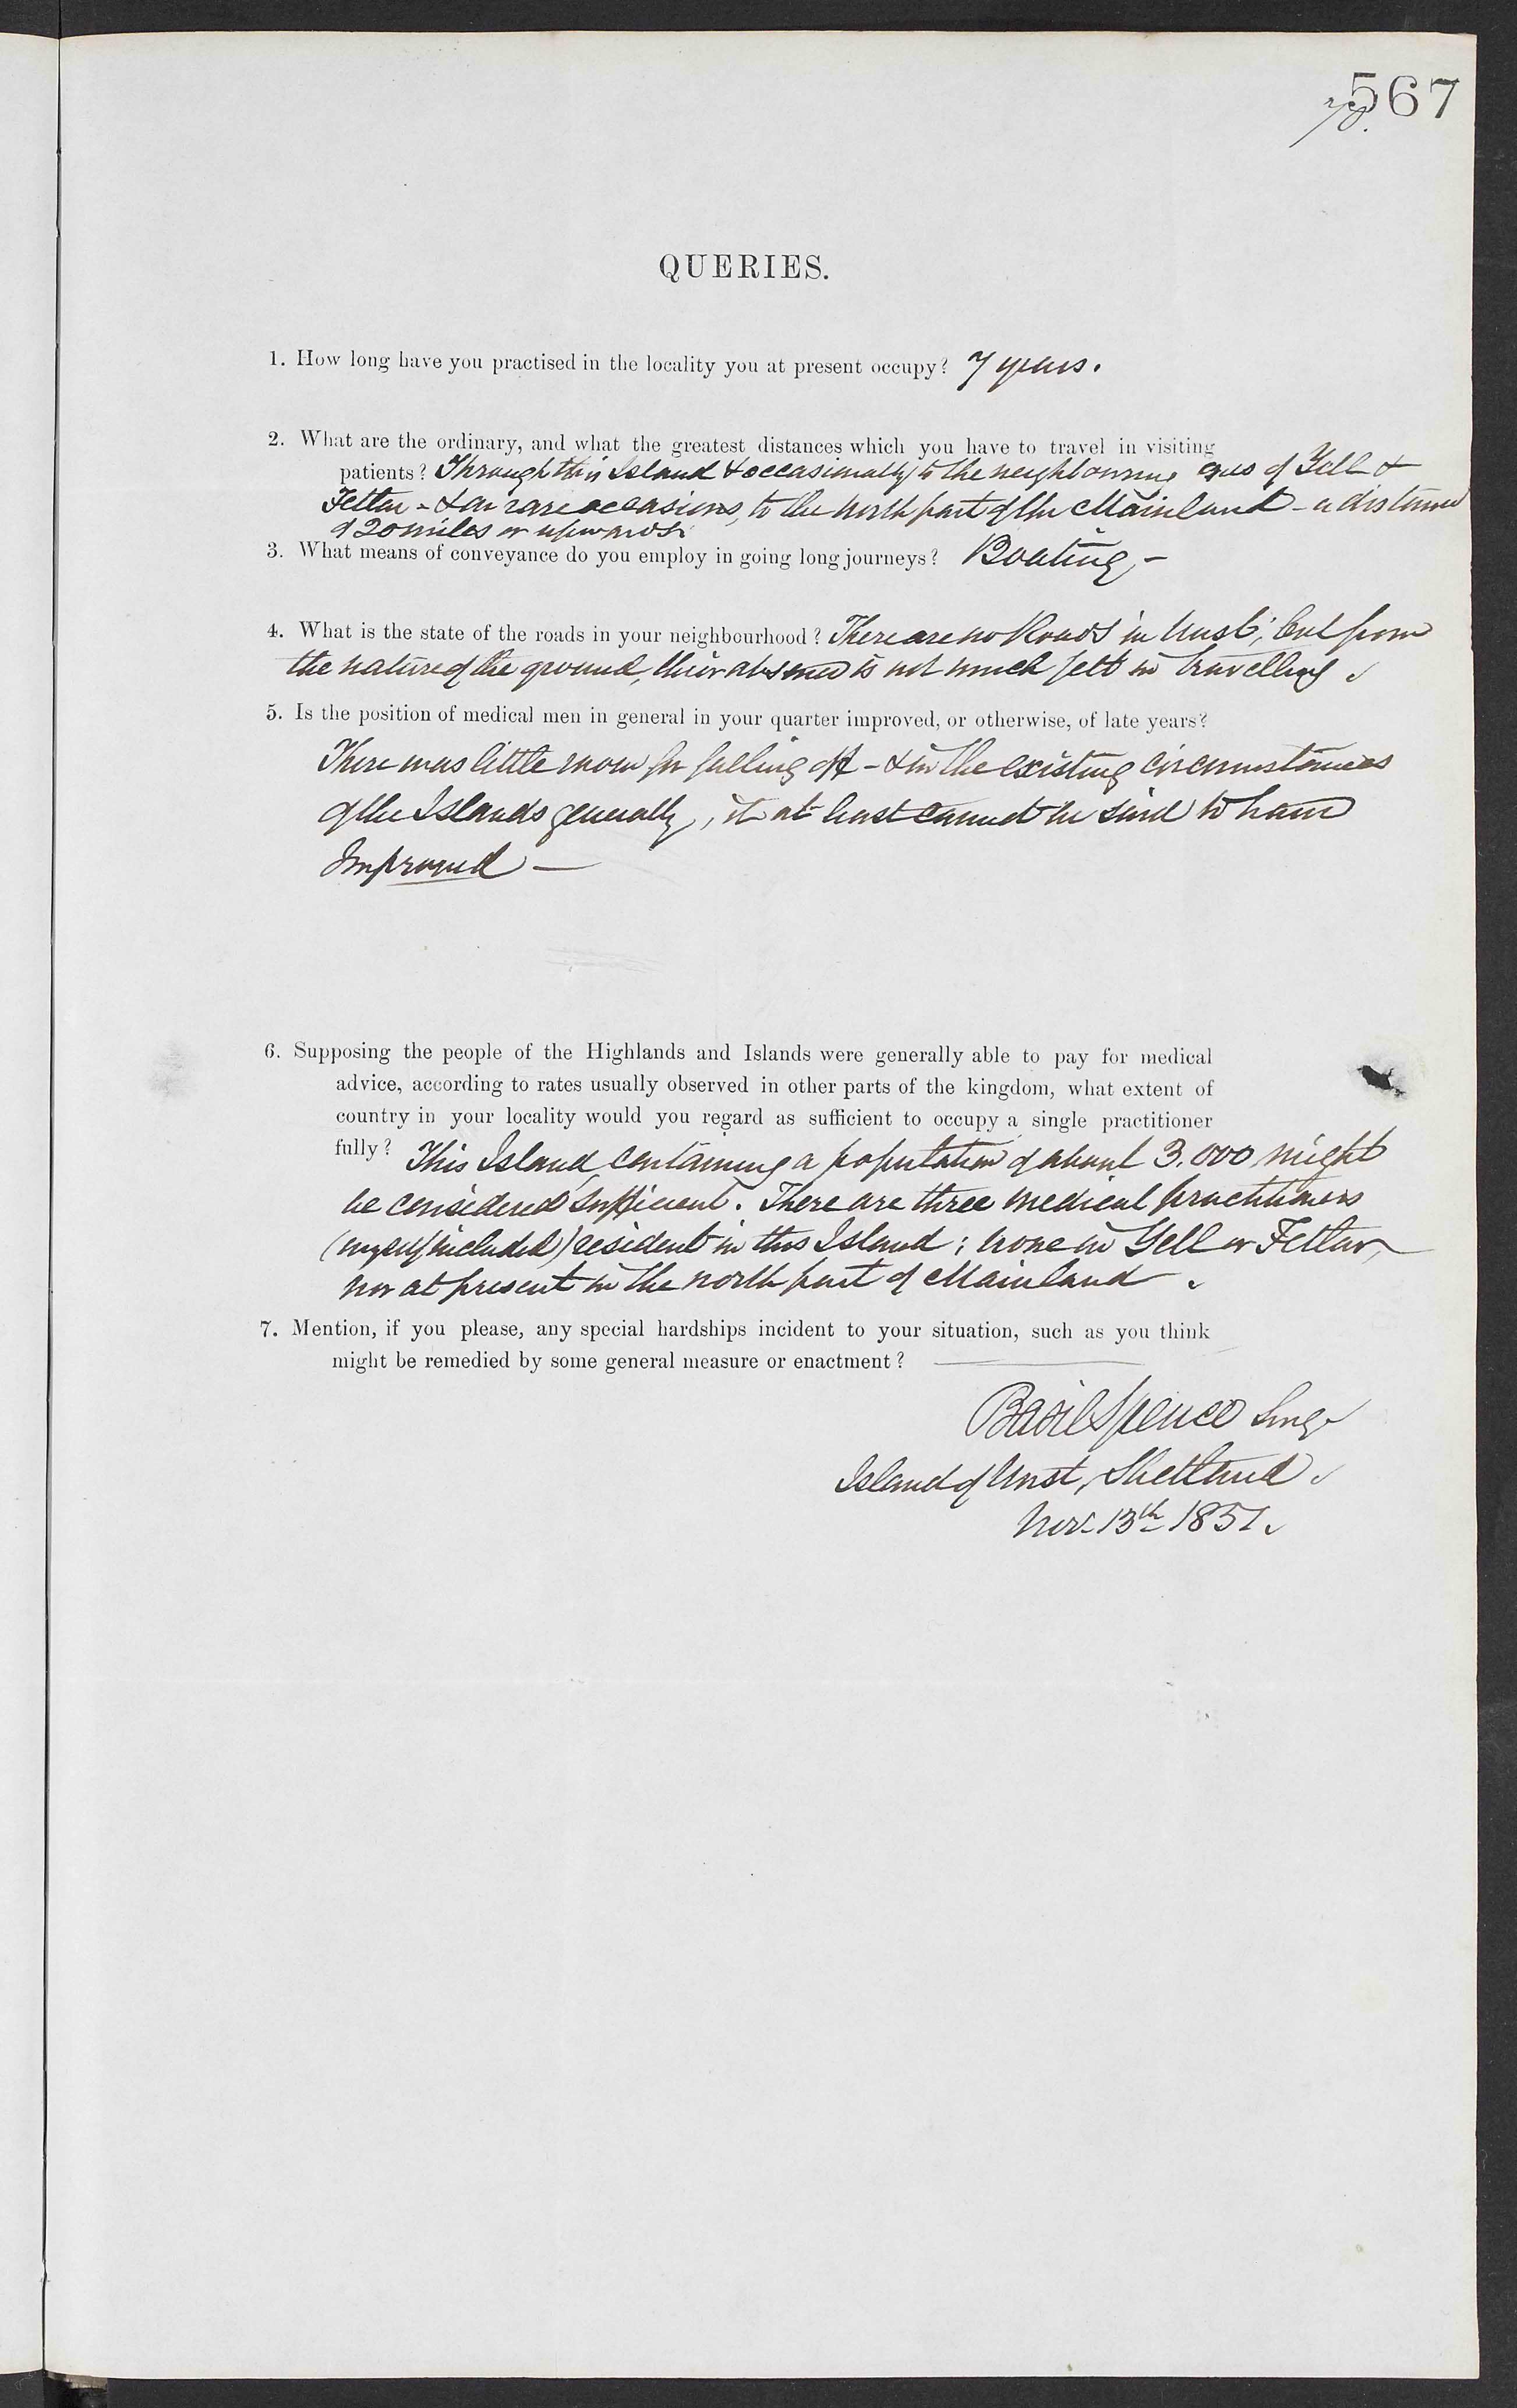 567
QUERIES.
1. How long have you practised in the locality you at present occupy? 7 years.
2. What are the ordinary, and what the greatest distances which you have to travel in visiting
patients? Through this Island & occasionally to the neighbouring ones of Yell &
Fetlar - & on rare occasions, to the North part of the Mainland - a distance
of 20 miles or upwards.
3. What means of conveyance do you employ in going long journeys? Boating, -
4. What is the state of the roads in your neighbourhood? There are no Roads in Unst; but from
the nature of the ground, their absence is not much felt in travelling.
5. Is the position of medical men in general in your quarter improved, or otherwise, of late years?
There was little room for falling off - & in the existing circumstances
of the Islands generally, it at least cannot be said to have
Improved —
6. Supposing the people of the Highlands and Islands were generally able to pay for medical
advice, according to rates usually observed in other parts of the kingdom, what extent of
country in your locality would you regard as sufficient to occupy a single practitioner
fully? This Island, containing a population of about 3.000 might
be considered sufficient. There are three medical practitioners
(myself included) resident in this Island; none in Yell or Fetlar,
nor at present in the north part of Mainland.
7. Mention, if you please, any special hardships incident to your situation, such as you think
might be remedied by some general measure or enactment? —
Basil Spence Surgn
Island of Unst, Shetland.
Novr. 13th 1851.